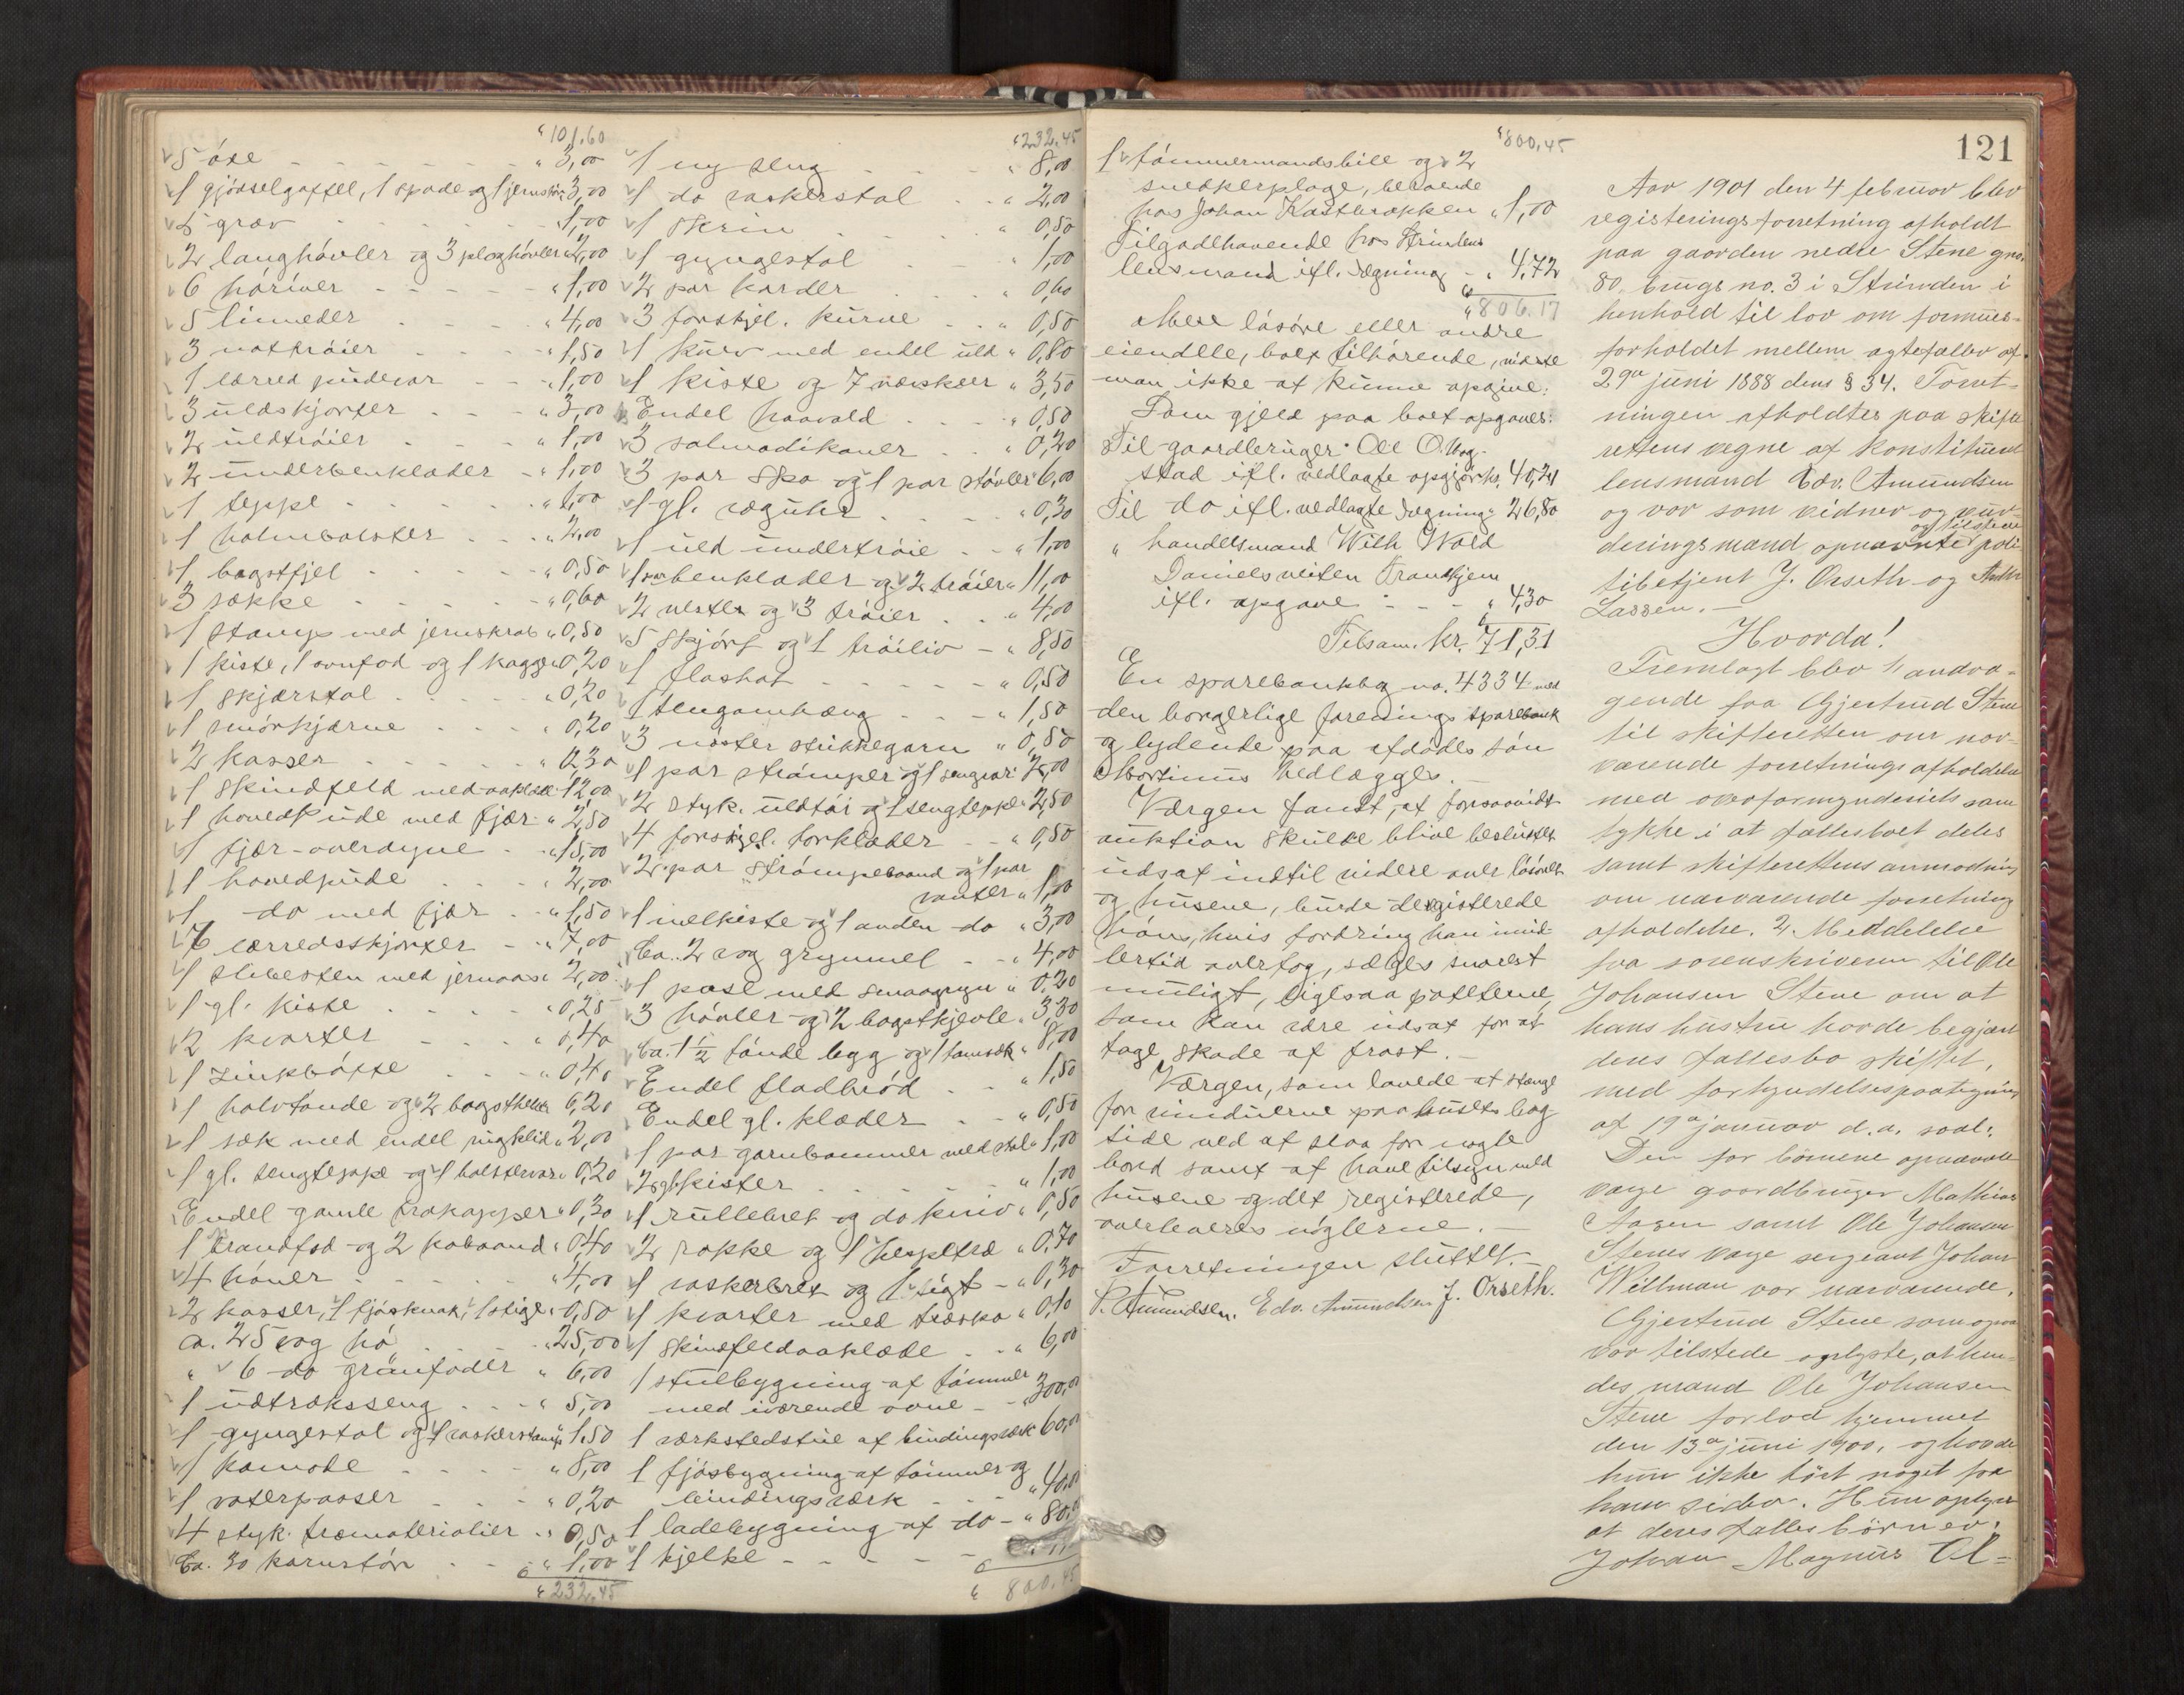 " 101.60
5 øxe " 3,00
1 gjødselgaffel, 1 spade og 1 jernstør 3,00
5 grav 1,00
2 langhøvler og 3 ploghøvler " 2,00
6 høriver " 1,00
5 " 4,00
3 nattrøier " 1,50
1 lærred pudevar " 1,00
3 uldskjorter " 3,00
2 uldtrøier " 1,00
2 underbenklæder " 1,00
1 teppe " 1,00
1 halmbolster " 2,00
1 bagstfjel " 0,50
3 sække " 0,60
1 stamp med jernskrab " 0,50
1 kiste, 1 ovnfod og 1 kagge " 0,20
1 skjærstol " 0,20
1 smørkjærne " 0,20
2 kasser " 0,30
1 skindfeld med aaklæde 12,00
1 hovedpude med fjær " 2,50
1 fjær-overdyne " 15,00
1 hovedpude " 2,00
1 do med fjær " 1,50
7 lærredsskjorter " 7,00
1 slibesten med jernaase 2,00
1 gl. kiste " 0,25
2 kvarter " 0,40
1 zinkbøtte " 0,40
1 halvtønde og 2 0,20
1 sæk med endel rugklid " 2,00
1 gl. sengteppe og 1 bolstervar " 0,20
Endel gamle " 0,30
1 brandfod og 2 " 0,40
4 høner " 4,00
2 kasser, 1 fjøskrak, 1 stige " 0,50
ca. 25 vog hø " 25,00
" 6 do grønfoder " 6,00
1 udtræksseng " 5,00
1 gyngestol og 1 vaskerstamp " 1.50
1 komode " 8,00
1 vaterpasser " 0,20
4 styk. træmaterialier " 0,50
Ca. 30 kornstør " 1,00
" 232.45
" 232.45
1 ny seng " 8,00
1 do vaskerstol " 2,00
1 skrin " 0,50
1 gyngestol " 1,00
2 par karder " 0,60
3 forskjel. kurve " 0,50
1 kurv med endel uld " 0,80
1 kiste og 7 " 3,50
Endel " 0,50
3 salmodikaner " 0,20
3 par sko og 1 par støvler " 6,00
1 gl. væguhr " 0,30
1 uld undertrøie " 1,00
1 par benklæder og 2 trøier " 11,00
2 vester og 3 trøier " 4,00
5 skjørt og 1 trøiliv " 8,50
1 floshat " 0,50
1 sengomhæng " 1,50
3 nøster strikkegarn " 0,50
1 par strømper og 1 sengvar " 2,00
2 styk. uldtøi og 1 sengteppe " 2,50
4 forskjel. forklæder " 0,50
2 par strømpebaand og 1 par
vanter " 1,00
1 melkiste og 1 anden do " 3,00
Ca. 2 vog grynmel " 4,00
1 pose med smaagryn " 0,20
3 høvler og 2 bagstkjevle " 3,30
Ca. 1½ tønde bygg og 1 tomsæk " 8,00
Endel fladbrød " 1,50
Endel gl. klæder " 0,50
1 par garnbommer med stol " 1,00
2 gl. kister " 1,00
1 rullebret og do kniv " 0,50
2 rokke og 1 hespetræ " 0,70
1 vaskerbret og 1 " 0,30
1 kvarter med træsko " 0,10
1 skindfeldaaklæde " 6,00
1 stuebygning af tømmer
med iværende ovne " 300,00
1 værkstedstue af bindingsværk 60,00
1 fjøsbygning af tømmer og
bindingsværk " 40,00
1 ladebygning af do " 80,00
1 kjelke
" 800.45
" 800,45
1 tømmermandsbile og 2
snedkerploge, beroende
hos Johan Kastbrækken " 1,00
Tilgodehavende hos Strindens
lensmand ifl. regning " 4,72
" 806.17
Mere løsøre eller andre
eiendele, boet tilhørende, vidste
man ikke at kunne opgive.
Som gjeld paa boet opgaves:
Til gaardbruger Ole O. Vog-
stad ifl. vedlagte opgjør kr. 40,21
Til do ifl. vedlagte regning " 26,80
" handelsmand Wilh Wold
Danielsveiten Trondhjem
ifl. opgave " 4,30
Tilsam. kr. 71,31
En sparebankbog no. 4334 med
den borgerlige forenings sparebank
og lydende paa afdødes søn
Martinus vedlægges.
Værgen fandt, at forsaavidt
auktion skulde blive besluttet
udsat indtil videre over løsøret
og husene, burde de registrerede
høns, hvis fordring han imid-
lertid overtog, sælges snarest
muligt, ligesaa poteterne,
som kan være udsat for at
tage skade af frost.
Værgen, som lovede at stænge
for vinduerne paa husets bag
side ved at slaa for nogle
bord samt at have tilsyn med
husene og det registrerede,
overleveres nøglerne.
Forretningen sluttet.
S. Amundsen. Edv. Amundsen J. Orseth.
121
Aar 1901 den 4 februar blev
registeringsforretning afholdt
paa gaarden nedre Stene gno.
80, brugs no. 3 i Strinden i
henhold til lov om formues-
forholdet mellem ægtefæller af
29de juni 1888 dens § 34. Forret-
ningen afholdtes paa skifte
rettens vegne af konstitueret
lensmand Edv. Amundsen
og var som vidner og vur-
deringsmænd opnævnte og tilstede poli
tibetjent J. Orseth og Anth
Lassen.
Hvorda!
Fremlagt blev 1, andra-
gende fra Gjertrud Stene
til skifteretten om nær-
værende forretnings afholdelse
med overformynderiets sam
tykke i at fællesboet deles
samt skifterettens anmodning
om nærværende forretnings
afholdelse. 2, Meddelelse
fra sorenskriveren til Ole
Johansen Stene om at
hans hustru havde begjært
deres fællesbo skiftet,
med forkyndelsespaategning
af 19de januar d.a. saal:
Den for børnene opnævnte
værge gaardbruger Mathias
Aagen samt Ole Johansen
Stenes værge sergeant Johan
Willman var nærværende.
Gjertrud Stene som og
var tilstede oplyste, at hen-
des mand Ole Johansen
Stene forlod hjemmet
den 13de juni 1900, og havde
hun ikke hørt noget fra
ham siden. Hun oplyser
at deres fælles børn er:
Johan Magnus Ol-